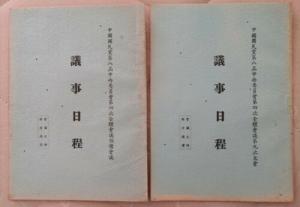 中國國民黨第八屆中央委員會第四次全體會議預備會議
議事日程
中國國民黨第八屆中央委員會第四次全體會議第九次大會
議事日程